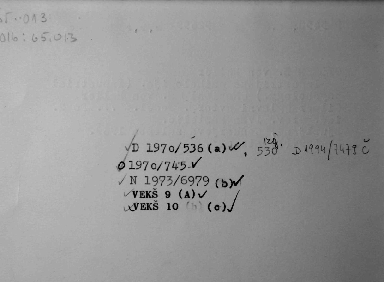 016:05.013
✓D 1970/536 (a)✓✓, 530 D 1994/7479 Č
O 1970/745✓
✓ N 1973/6979 (b)✓
✓VEKŠ 9 (A)✓
VEKŠ 10 (4) (c)✓